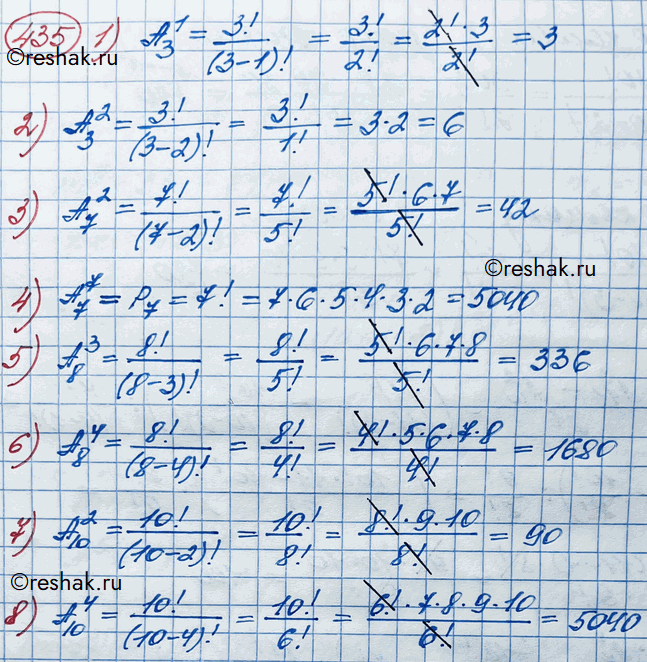 435 1) A₃¹ = 3!/(3-1)! = 3!/2! = 2!·3/2! = 3
©reshak.ru
2) A₃² = 3!/(3-2)! = 3!/1! = 3·2 = 6
3) A₇² = 7!/(7-2)! = 7!/5! = 5!·6·7/5! = 42
©reshak.ru
4) A₇⁷ = P₇ = 7! = 7·6·5·4·3·2 = 5040
5) A₈³ = 8!/(8-3)! = 8!/5! = 5!·6·7·8/5! = 336
6) A₈⁴ = 8!/(8-4)! = 8!/4! = 4!·5·6·7·8/4! = 1680
7) A₁₀² = 10!/(10-2)! = 10!/8! = 8!·9·10/8! = 90
©reshak.ru
8) A₁₀⁴ = 10!/(10-4)! = 10!/6! = 6!·7·8·9·10/6! = 5040